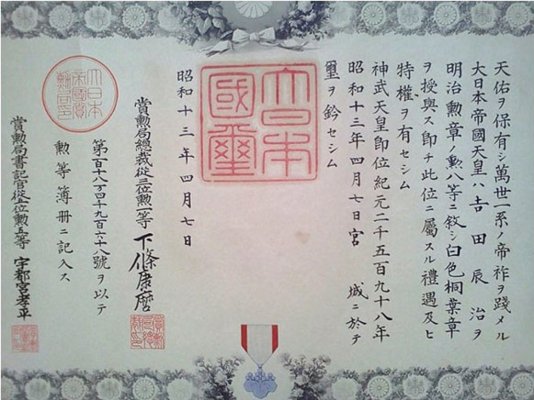 天佑ヲ保有シ萬世一系ノ帝祚ヲ踐メル
大日本帝國天皇ハ吉田辰治ヲ
明治勲章ノ勲八等ニ敍シ白色桐葉章
ヲ授與ス即チ此位ニ屬スル禮遇及ヒ
特權ヲ有セシム
神武天皇即位紀元二千五百九十八年
昭和十三年四月七日宮城ニ於テ
璽ヲ鈐セシム
大日本國璽
昭和十三年四月七日
賞勲局總裁從三位勲一等下條康麿
第百十八万四千九百六十八號ヲ以テ
勲等簿册ニ記入ス
賞勲局書記官從五位勲五等宇都宮孝平
大日本帝國賞勲局印